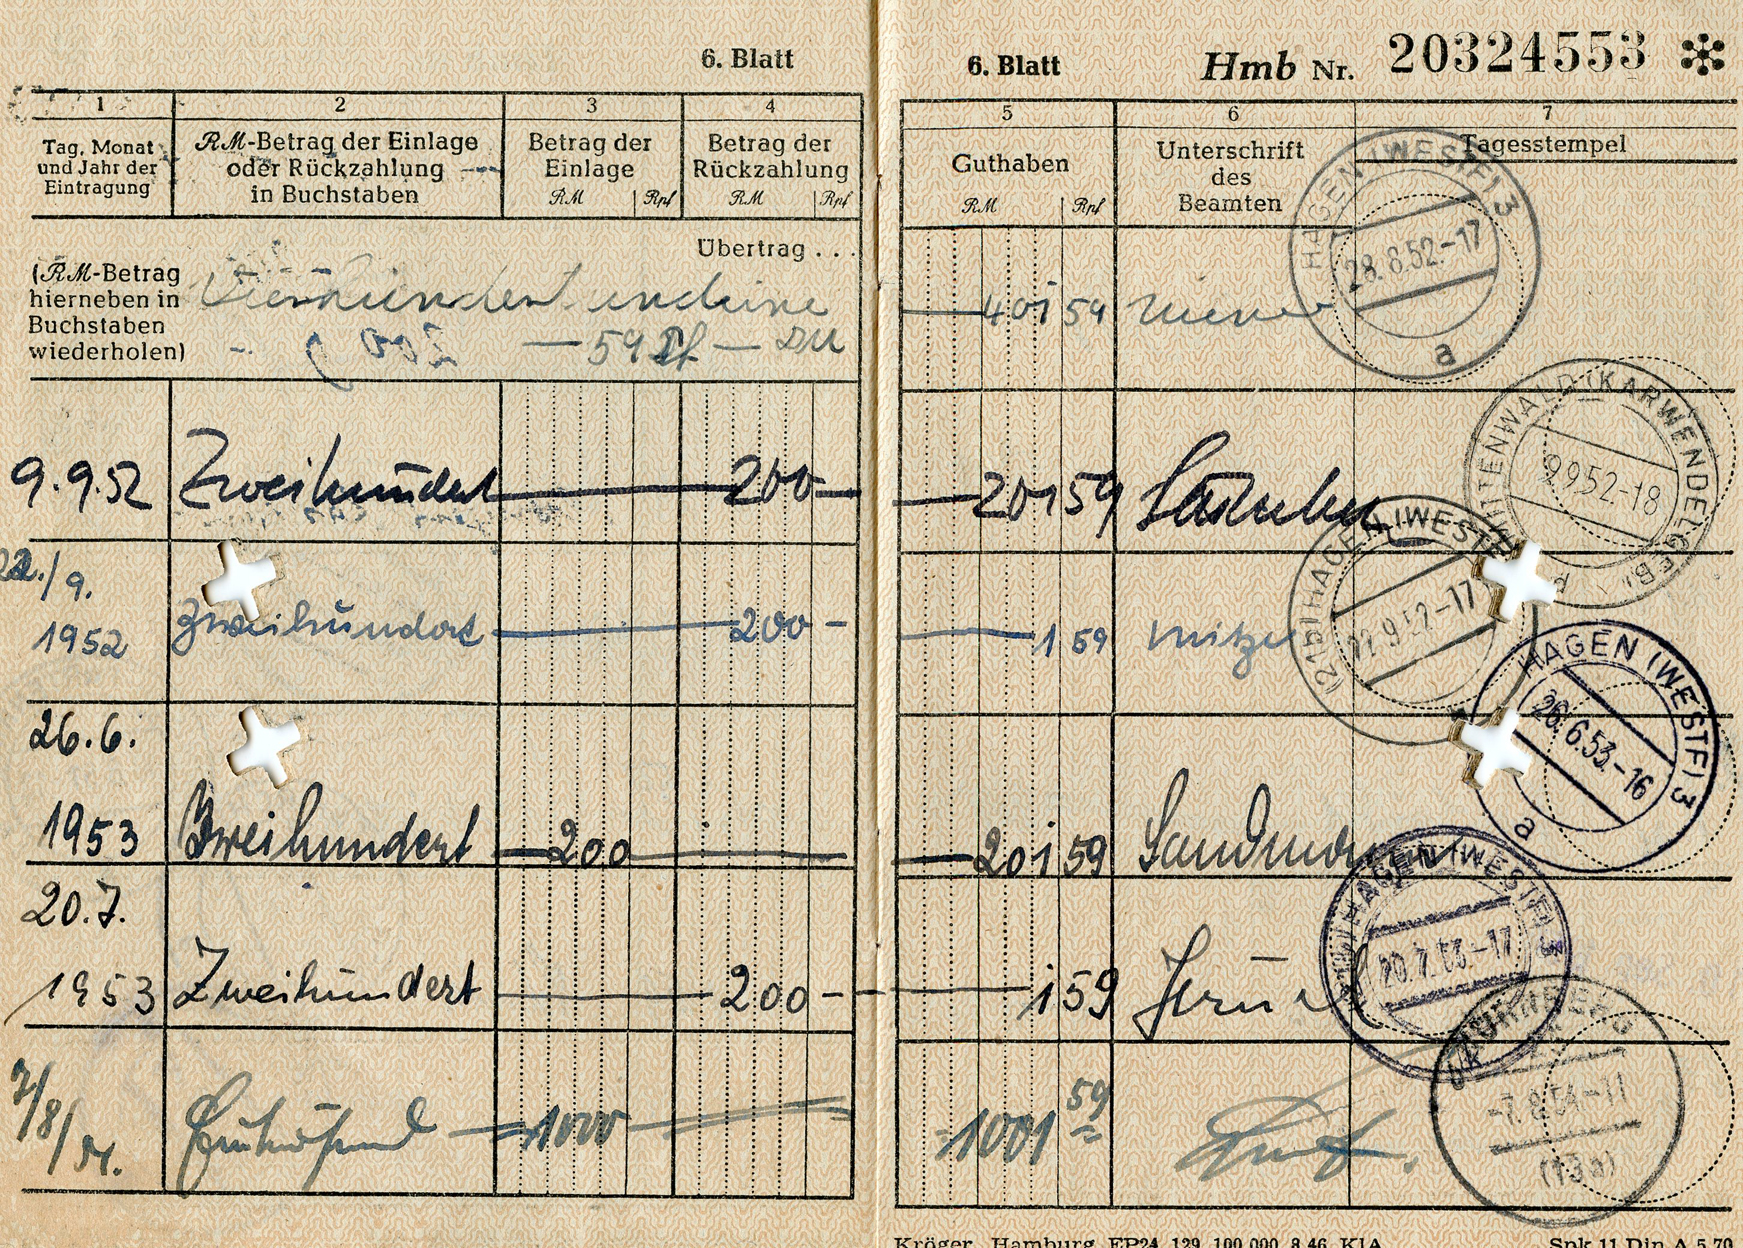 6. Blatt
1 2 3 4
Tag, Monat und Jahr der Eintragung
RM-Betrag der Einlage oder Rückzahlung in Buchstaben
Betrag der Einlage
RM Rpf
Betrag der Rückzahlung
RM Rpf
Übertrag . . .
(RM-Betrag hierneben in Buchstaben wiederholen)
Vierhundert undeine
— 59 Pf — DM
9.9.52 Zweihundert 200 —
22./9. 1952 Zweihundert 200 —
26.6. 1953 Zweihundert 200
20.7. 1953 Zweihundert 200 —
7/8/54. Eintausend 1000
6. Blatt Hmb Nr. 20324553
5 6 7
Guthaben
RM Rpf
Unterschrift des Beamten
Tagesstempel
401 59
HAGEN (WESTF) 3
28.8.52.-17
a
201 59
MITTENWALD (KARWENDELGEB)
9.9.52-18
1 59
(21b) HAGEN (WESTF)
22.9.52-17
201 59
HAGEN (WESTF) 3
26.6.53.-16
a
1 59
HAGEN (WESTF) 3
20.7.53.-17
1001 59
NÜRNBERG
-7.8.54-11
(13a)
Kröger, Hamburg EP24 129 100 000 8.46 KlA
Spk 11 Din A 5 70